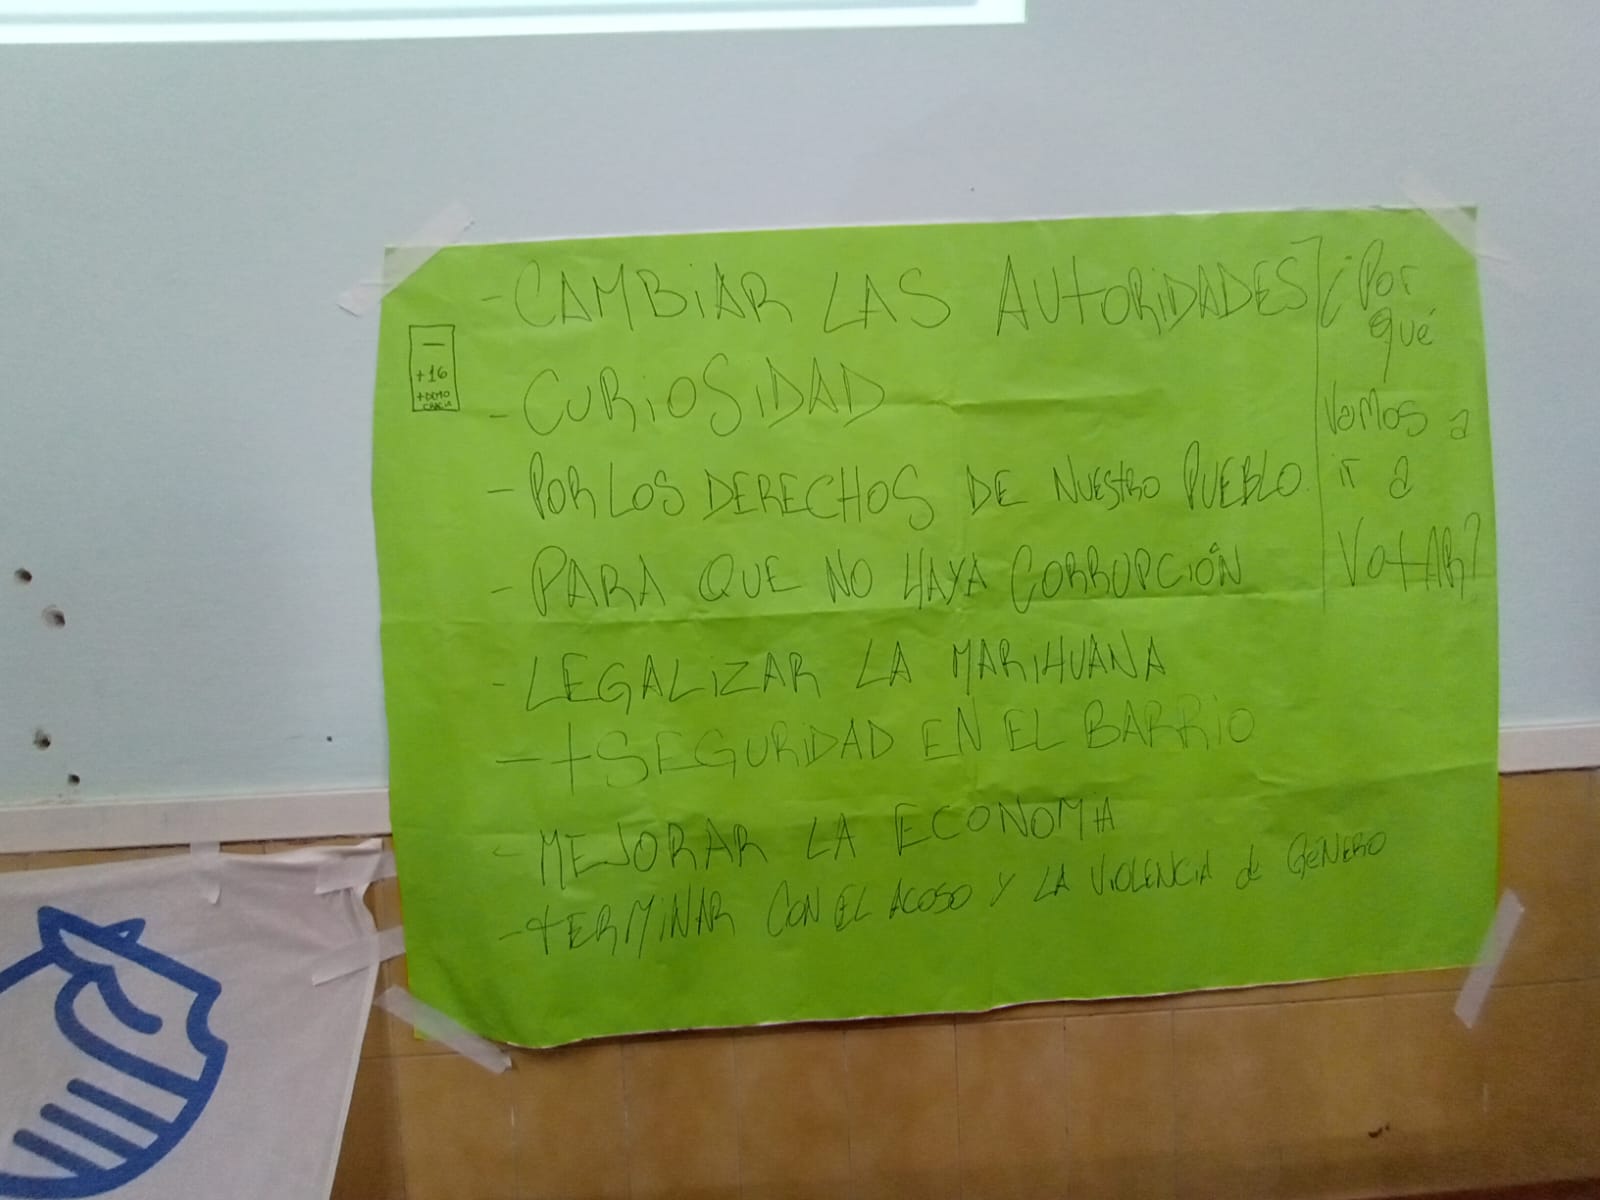 - CAMBiAR LAS AUtORiDADES
- CURiOSiDAD
- POR LOS DERECHOS DE NUEStRO PUEBLO.
- PARA QUE NO HAYA CORRUPCIÓN
- LEGALiZAR LA MARiHUANA
- + SEGURiDAD EN EL BARRiO
- MEJORAR LA ECONOMiA
- tERMiNAR CON EL ACOSO Y LA ViOLENCiA de GéNERO
¿Por
qué
Vamos a
ir a
VotAR?
+16
+DEMO
CRACiA